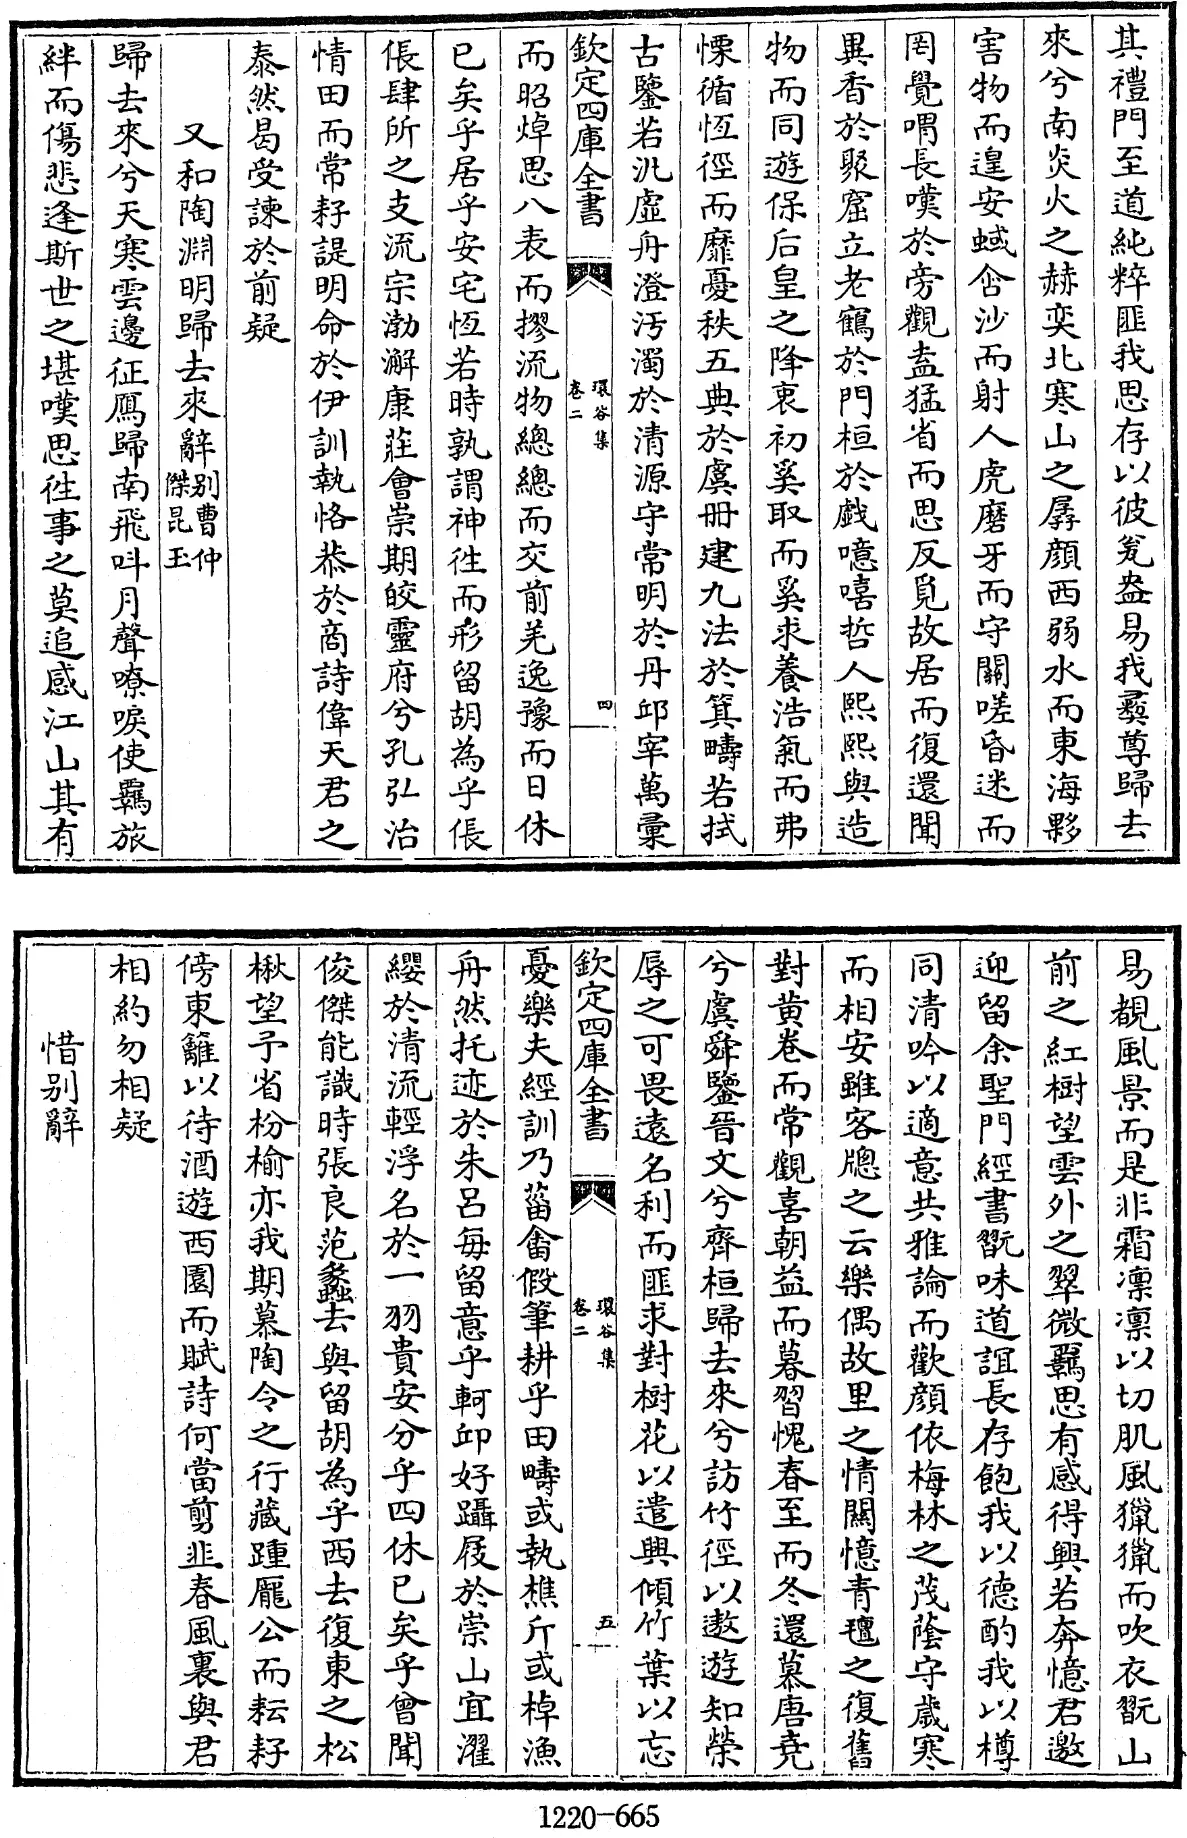 其禮門至道純粹匪我思存以彼瓮盎易我彞尊歸去
來兮南炎火之赫奕北寒山之孱顔西弱水而東海夥
害物而遑安蜮含沙而射人虎磨牙而守關嗟昏迷而
罔覺喟長嘆於旁觀盍猛省而思反覓故居而復還聞
異香於聚窟立老鶴於門桓於戱噫嘻哲人熙熙與造
物而同遊保后皇之降衷初奚取而奚求養浩氣而弗
慄循恆徑而靡憂秩五典於虞册建九法於箕疇若拭
古鑒若汎虛舟澄汚濁於清源守常明於丹邱宰萬彙
欽定四庫全書
環谷集
卷二
四
而昭焯思八表而摎流物總總而交前羌逸豫而日休
已矣乎居乎安宅恆若時孰謂神徃而形留胡為乎倀
倀肆所之支流宗渤澥康莊會崇期皎靈府兮孔弘治
情田而常耔諟明命於伊訓執恪恭於商詩偉天君之
泰然曷受諫於前疑
又和陶淵明歸去來辭别曹仲
傑昆玉
歸去來兮天寒雲邊征鴈歸南飛呌月聲嘹唳使羈旅
絆而傷悲逢斯世之堪嘆思徃事之莫追感江山其有
易覩風景而是非霜凛凛以切肌風獵獵而吹衣翫山
前之紅樹望雲外之翠微羈思有感得興若奔憶君邀
迎留余聖門經書翫味道誼長存飽我以德酌我以樽
同清吟以適意共雅論而歡顔依梅林之茂蔭守歳寒
而相安雖客牕之云樂偶故里之情關憶青氊之復舊
對黄卷而常觀喜朝益而暮習愧春至而冬還慕唐堯
兮虞舜鑒晉文兮齊桓歸去來兮訪竹徑以遨遊知榮
辱之可畏遠名利而匪求對樹花以遣興傾竹葉以忘
欽定四庫全書
環谷集
卷二
五
憂樂夫經訓乃菑畬假筆耕乎田疇或執樵斤或棹漁
舟然托迹於朱呂毎留意乎軻邱好躡屐於崇山宜濯
纓於清流輕浮名於一羽貴安分乎四休已矣乎曾聞
俊傑能識時張良范蠡去與留胡為乎西去復東之松
楸望予省枌榆亦我期慕陶令之行藏踵龐公而耘耔
傍東籬以待酒遊西園而賦詩何當剪韭春風裏與君
相約勿相疑
惜别辭
1220-665